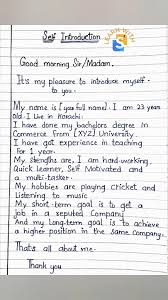 Self Introduction
LEARN WITH
Good morning Sir/Madam.
It's my pleasure to introduce myself
to you.
My name is [your full name]. I am 23 years
old. I Live in Karachi.
I have done my bachelors degree in
Commerce from [XYZ] University.
I have got experience in teaching
for 1 year.
My Strengths are, I am hard-working,
Quick Learner, Self Motivated and
a multi-tasker.
My hobbies are playing cricket and
Listening to music
My Short-term goal is to get a
job in a reputed Company
And my Long-term goal is to achieve
a higher position in the same company.
That's all about me.
Thank you